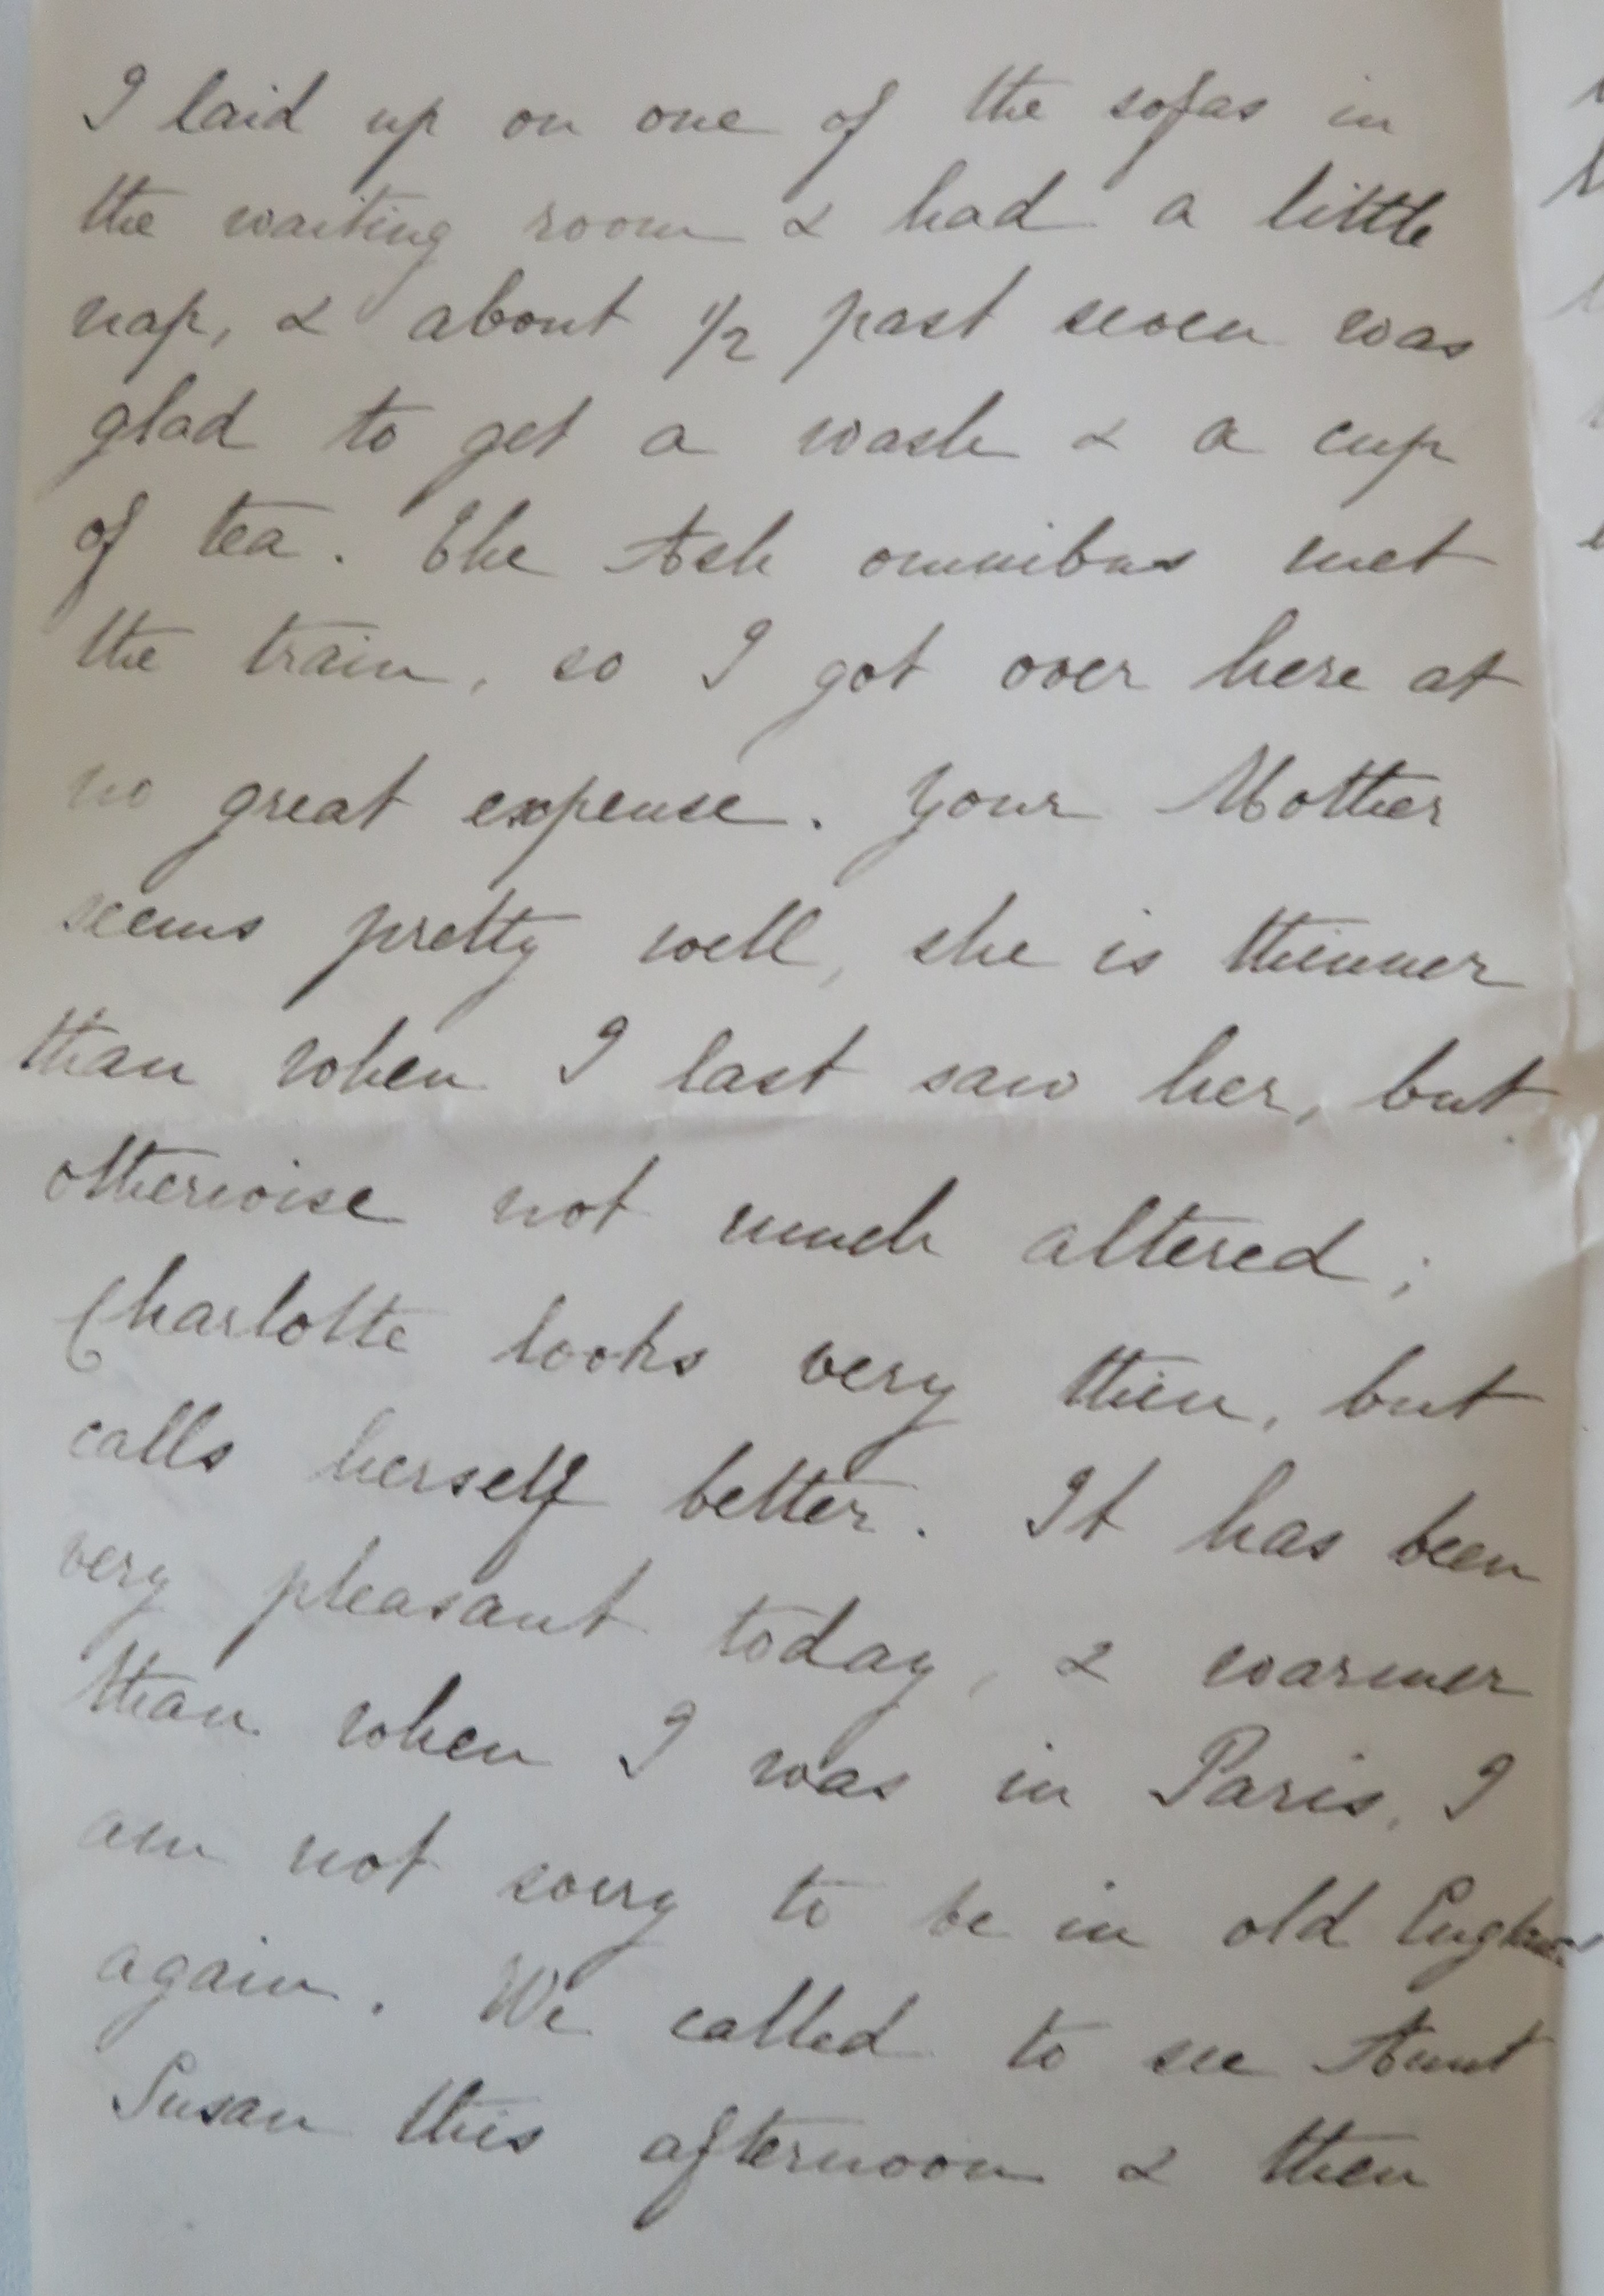 I laid up on one of the sofas in
the waiting room & had a little
nap, & about 1/2 past seven was
glad to get a wash & a cup
of tea. The Ash omnibus met
the train, so I got over here at
no great expense. Your Mother
seems pretty well, she is thinner
than when I last saw her, but
otherwise not much altered;
Charlotte looks very thin, but
calls herself better. It has been
very pleasant today, & warmer
than when I was in Paris. I
am not sorry to be in old England
again. We called to see Aunt
Susan this afternoon & then